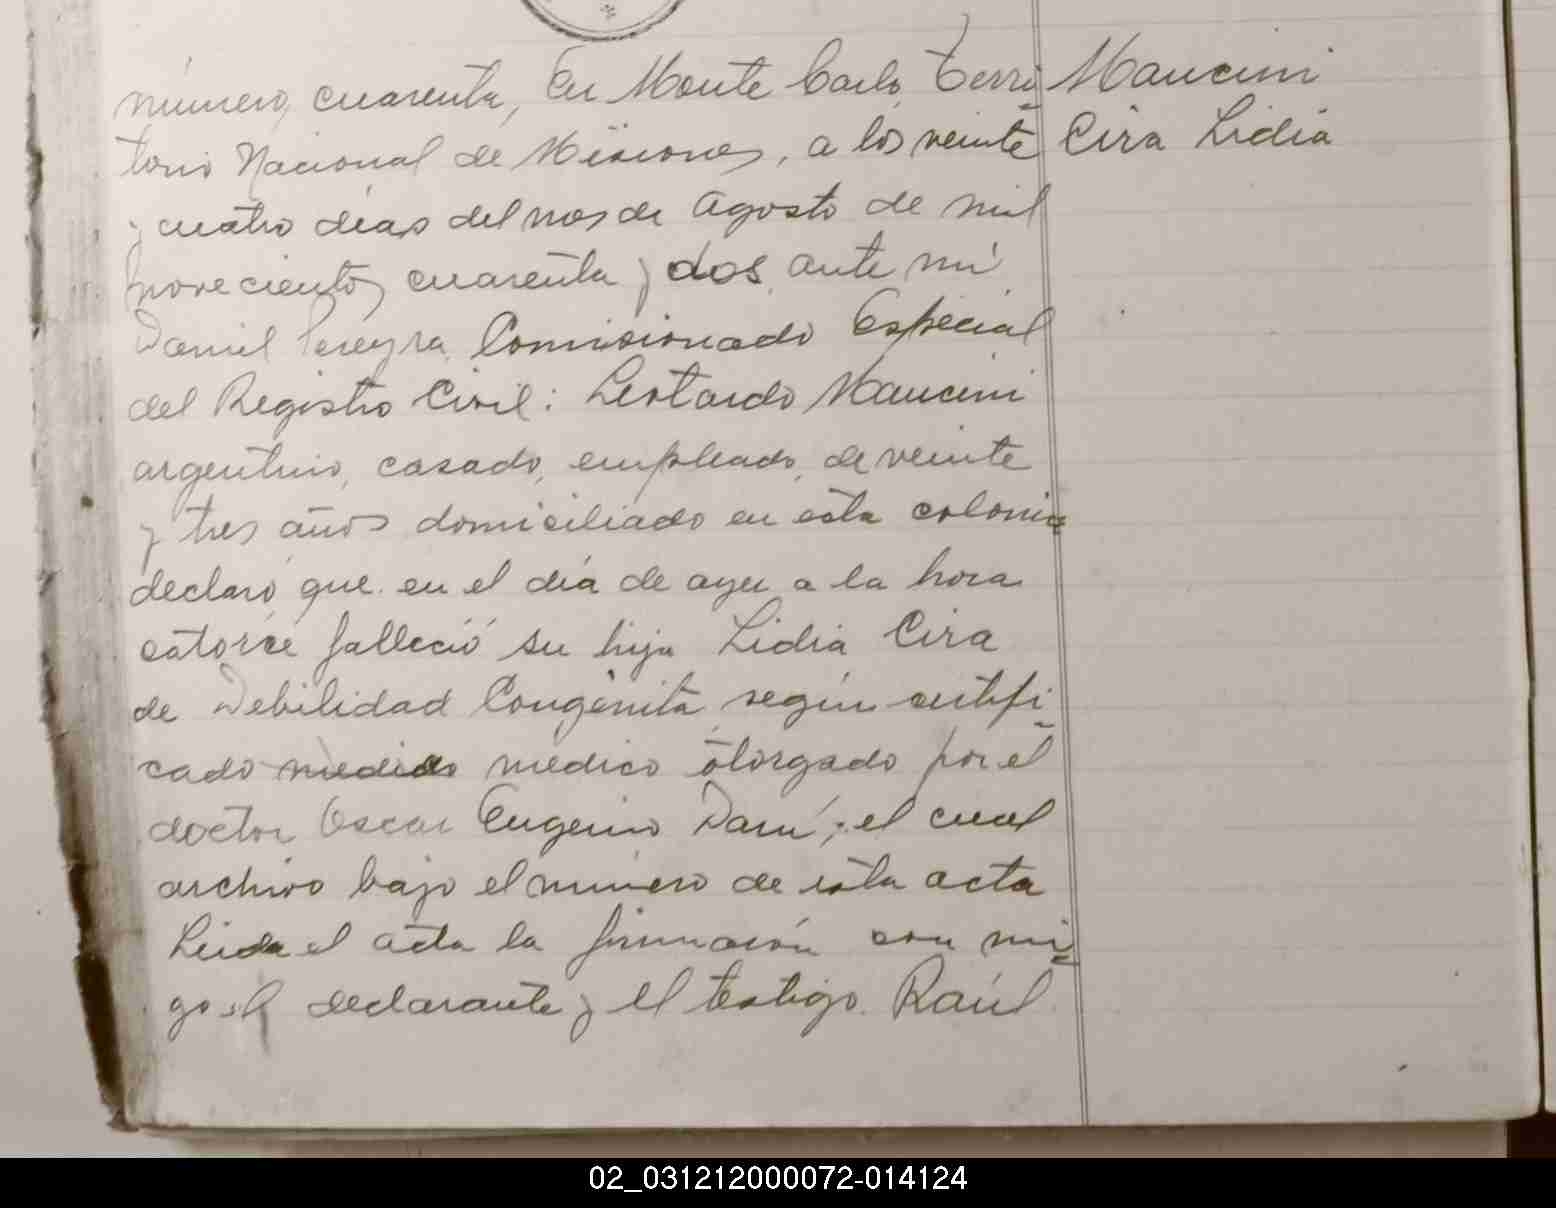 número, cuarenta, En Monte Carlo, Terri
torio Nacional de Misiones, a los veinte
y cuatro días del mes de Agosto de mil
novecientos cuarenta y dos, ante mí
Daniel Pereyra, Comisionado Especial
del Registro Civil: Leotardo Mancini
argentino, casado, empleado, de veinte
y tres años domiciliado en esta colonia
declaró que en el día de ayer a la hora
catorce falleció su hija Lidia Cira
de Debilidad Congénita, según certifi
cado medico medico otorgado por el
doctor Oscar Eugenio Darú; el cual
archivo bajo el número de esta acta
Leida el acta la firmarón con mi
go el declarante y el testigo Raúl
Mancini
Cira Lidia
02_031212000072-014124